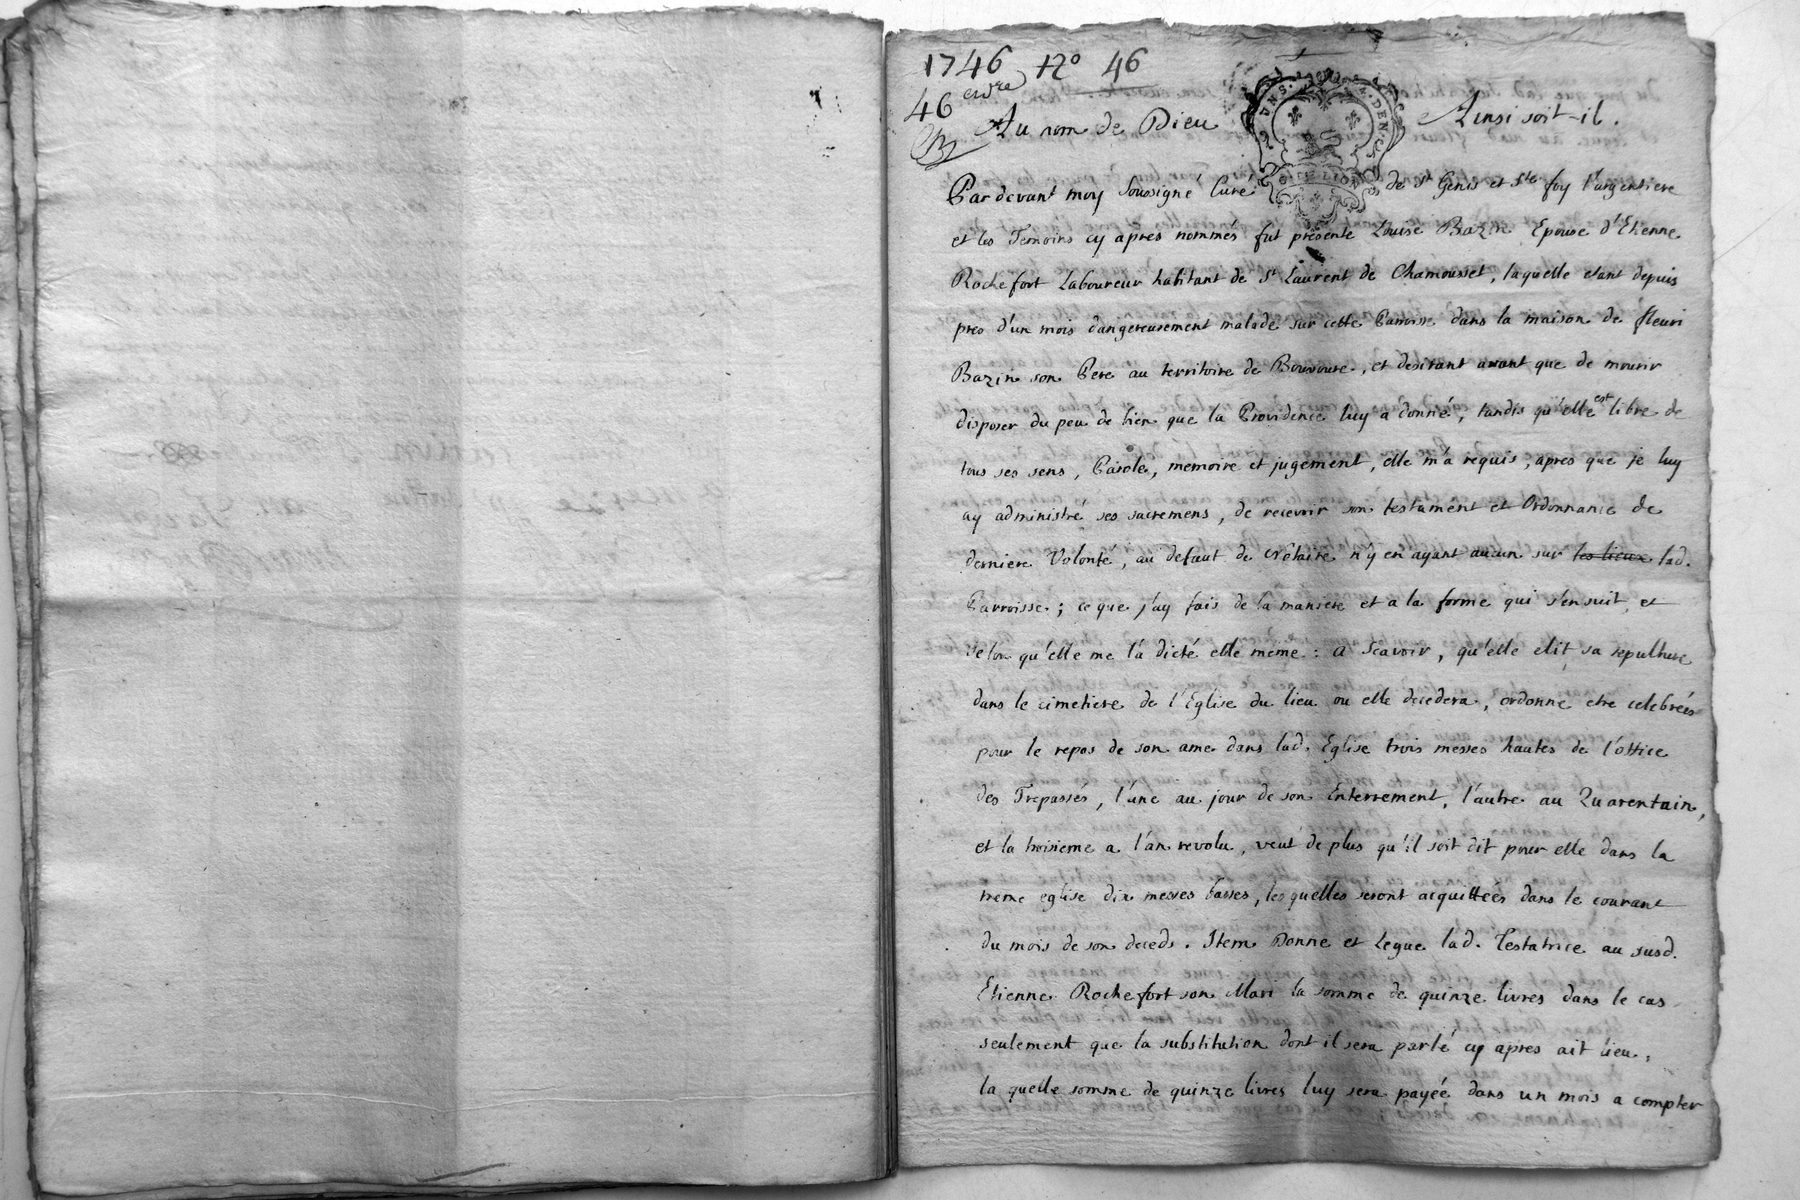 1746 No 46
46 endre
Au nom de Dieu Ainsi soit-il.
Pardevant moy soussigné Curé de St Genis et Ste foy l'argentiere
et les Temoins cy apres nommés fut presente Louise Bazin Epouse d'Etienne
Rochefort Laboureur habitant de St Laurent de Chamousset, laquelle etant depuis
pres d'un mois dangereusement malade sur cette Parroisse dans la maison de fleuri
Bazin son Pere au territoire de, et desirant avant que de mourir
disposer du peu de bien que la Providence luy a donné, tandis qu'elle est libre de
tous ses sens, Parole, memoire et jugement, elle m'a requis, apres que je luy
ay administré ses sacremens, de recevoir son testament et Ordonnance de
derniere Volonté, au defaut de Nôtaire n'y en ayant aucun sur les lieux lad.
Parroisse; ce que j'ay fais de la maniere et a la forme qui s'en suit, et
selon qu'elle me l'a dicté elle même: a Scavoir, qu'elle elit sa sepulture
dans le cimetiere de l'Eglise du lieu ou elle decedera, ordonne etre celebrées
pour le repos de son ame dans lad. Eglise trois messes hautes de l'office
des Trepassés, l'une au jour de son Enterrement, l'autre au Quarentain,
et la troisieme a l'an revolu, veut de plus qu'il soit dit pour elle dans la
meme eglise dix messes basses, lesquelles seront acquittées dans le courant
du mois de son deceds. Item Donne et Legue lad. Testatrice au susd.
Etienne Rochefort son Mari la somme de quinze livres dans le cas
seulement que la substitution dont il sera parlé cy apres ait lieu,
la quelle somme de quinze livres luy sera payée dans un mois a compter